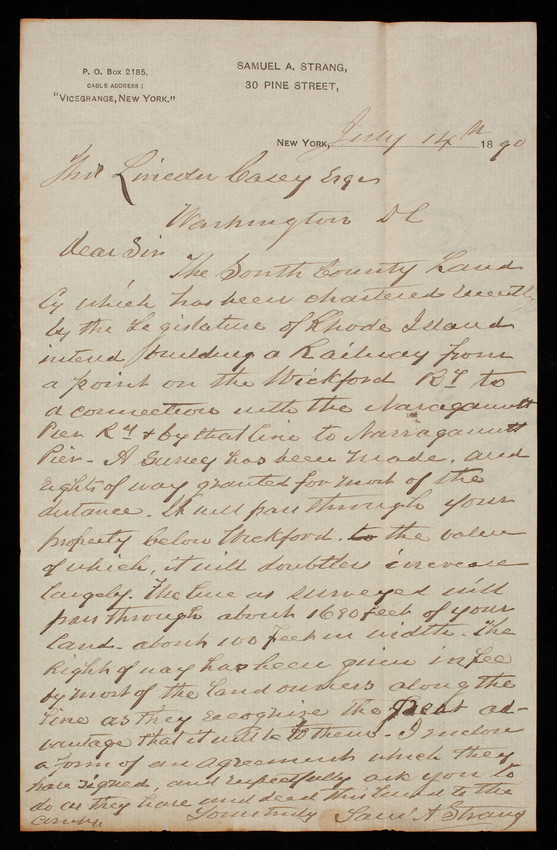 P. O. Box 2185.
CABLE ADDRESS:
"VICEGRANGE, NEW YORK."
SAMUEL A. STRANG,
30 PINE STREET,
NEW YORK, July 14th 1890
Lincoln Casey Esqr
Washington DC
Dear Sir
The South County Land
Cy which has been chartered recently
by the Legislature of Rhode Island
intend building a Railway from
a point on the Wickford Ry to
a connection with the Narragansett
Pier Ry & by that line to Narragansett
Pier - A survey has been made, and
rights of way granted for most of the
distance. It will pass through your
property below Wickford. to the value
of which, it will doubtless increase
largely. The line as surveyed will
pass through about 1680 feet of your
land - about 100 feet in width. The
Right of way has been given in fee
by most of the land owners along the
line as they recognize the great ad-
vantage that it will be to them - I enclose
a form of an agreement which they
have signed, and respectfully ask you to
do as they have and deed this land to the
Yours truly Saml A Strang